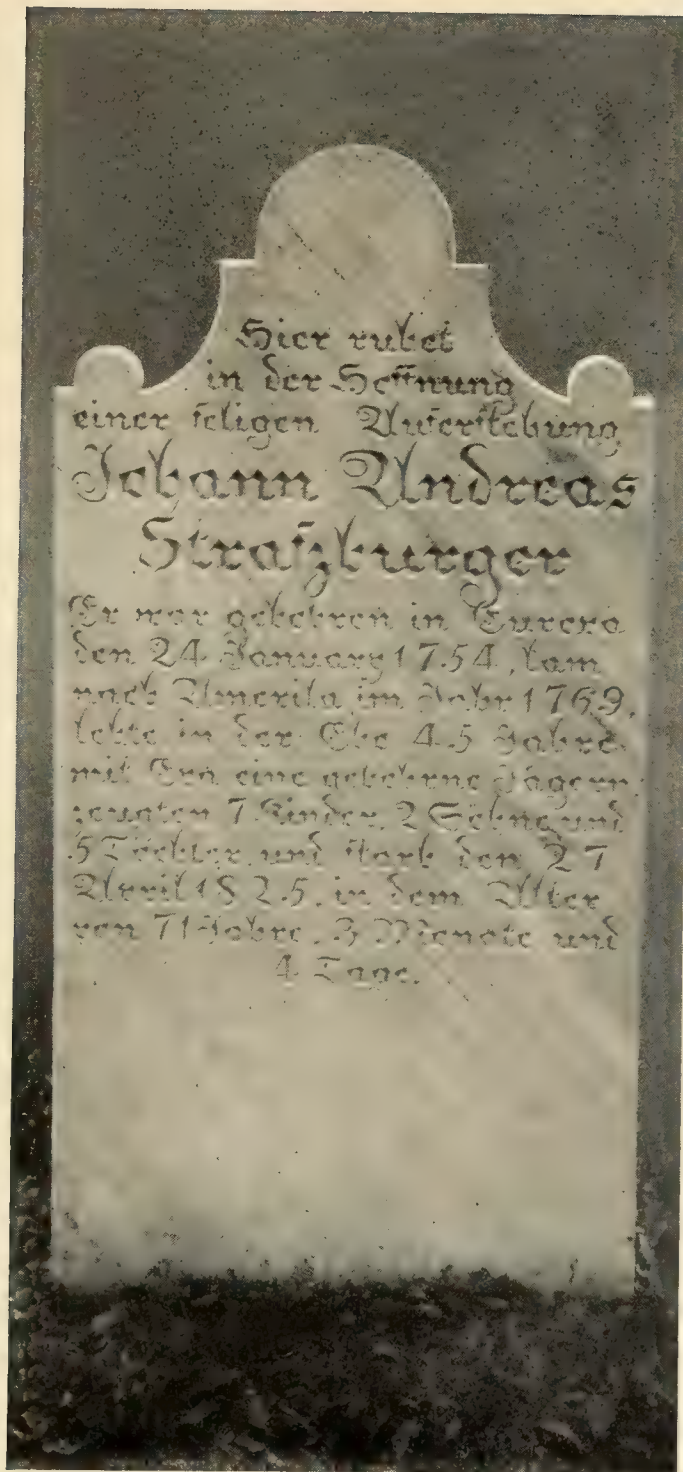 Hier ruhet
in der Hoffnung
einer seligen Auferstehung
Johann Andreas
Straszburger
Er war gebohren in Europa
den 24 January 1754, kam
nach Amerika im Jahr 1769,
lebte in der Ehe 45 Jahre
mit Eva eine gebohrne Jägern
zeugten 7 Kinder, 2 Söhne und
5 Töchter, und starb den 27
April 1825, in dem Alter
von 71 Jahre, 3 Monate und
4 Tage.